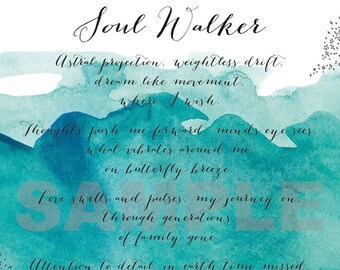 Soul Walker
Astral projection, weightless drift,
dream like movement,
where I wish.
Thoughts push me forward minds eye sees,
what vibrates around me
on butterfly breeze.
Love swells and pulses, my journey on,
through generations
of family gone
SAMPLE
Attention to detail in earth time missed,